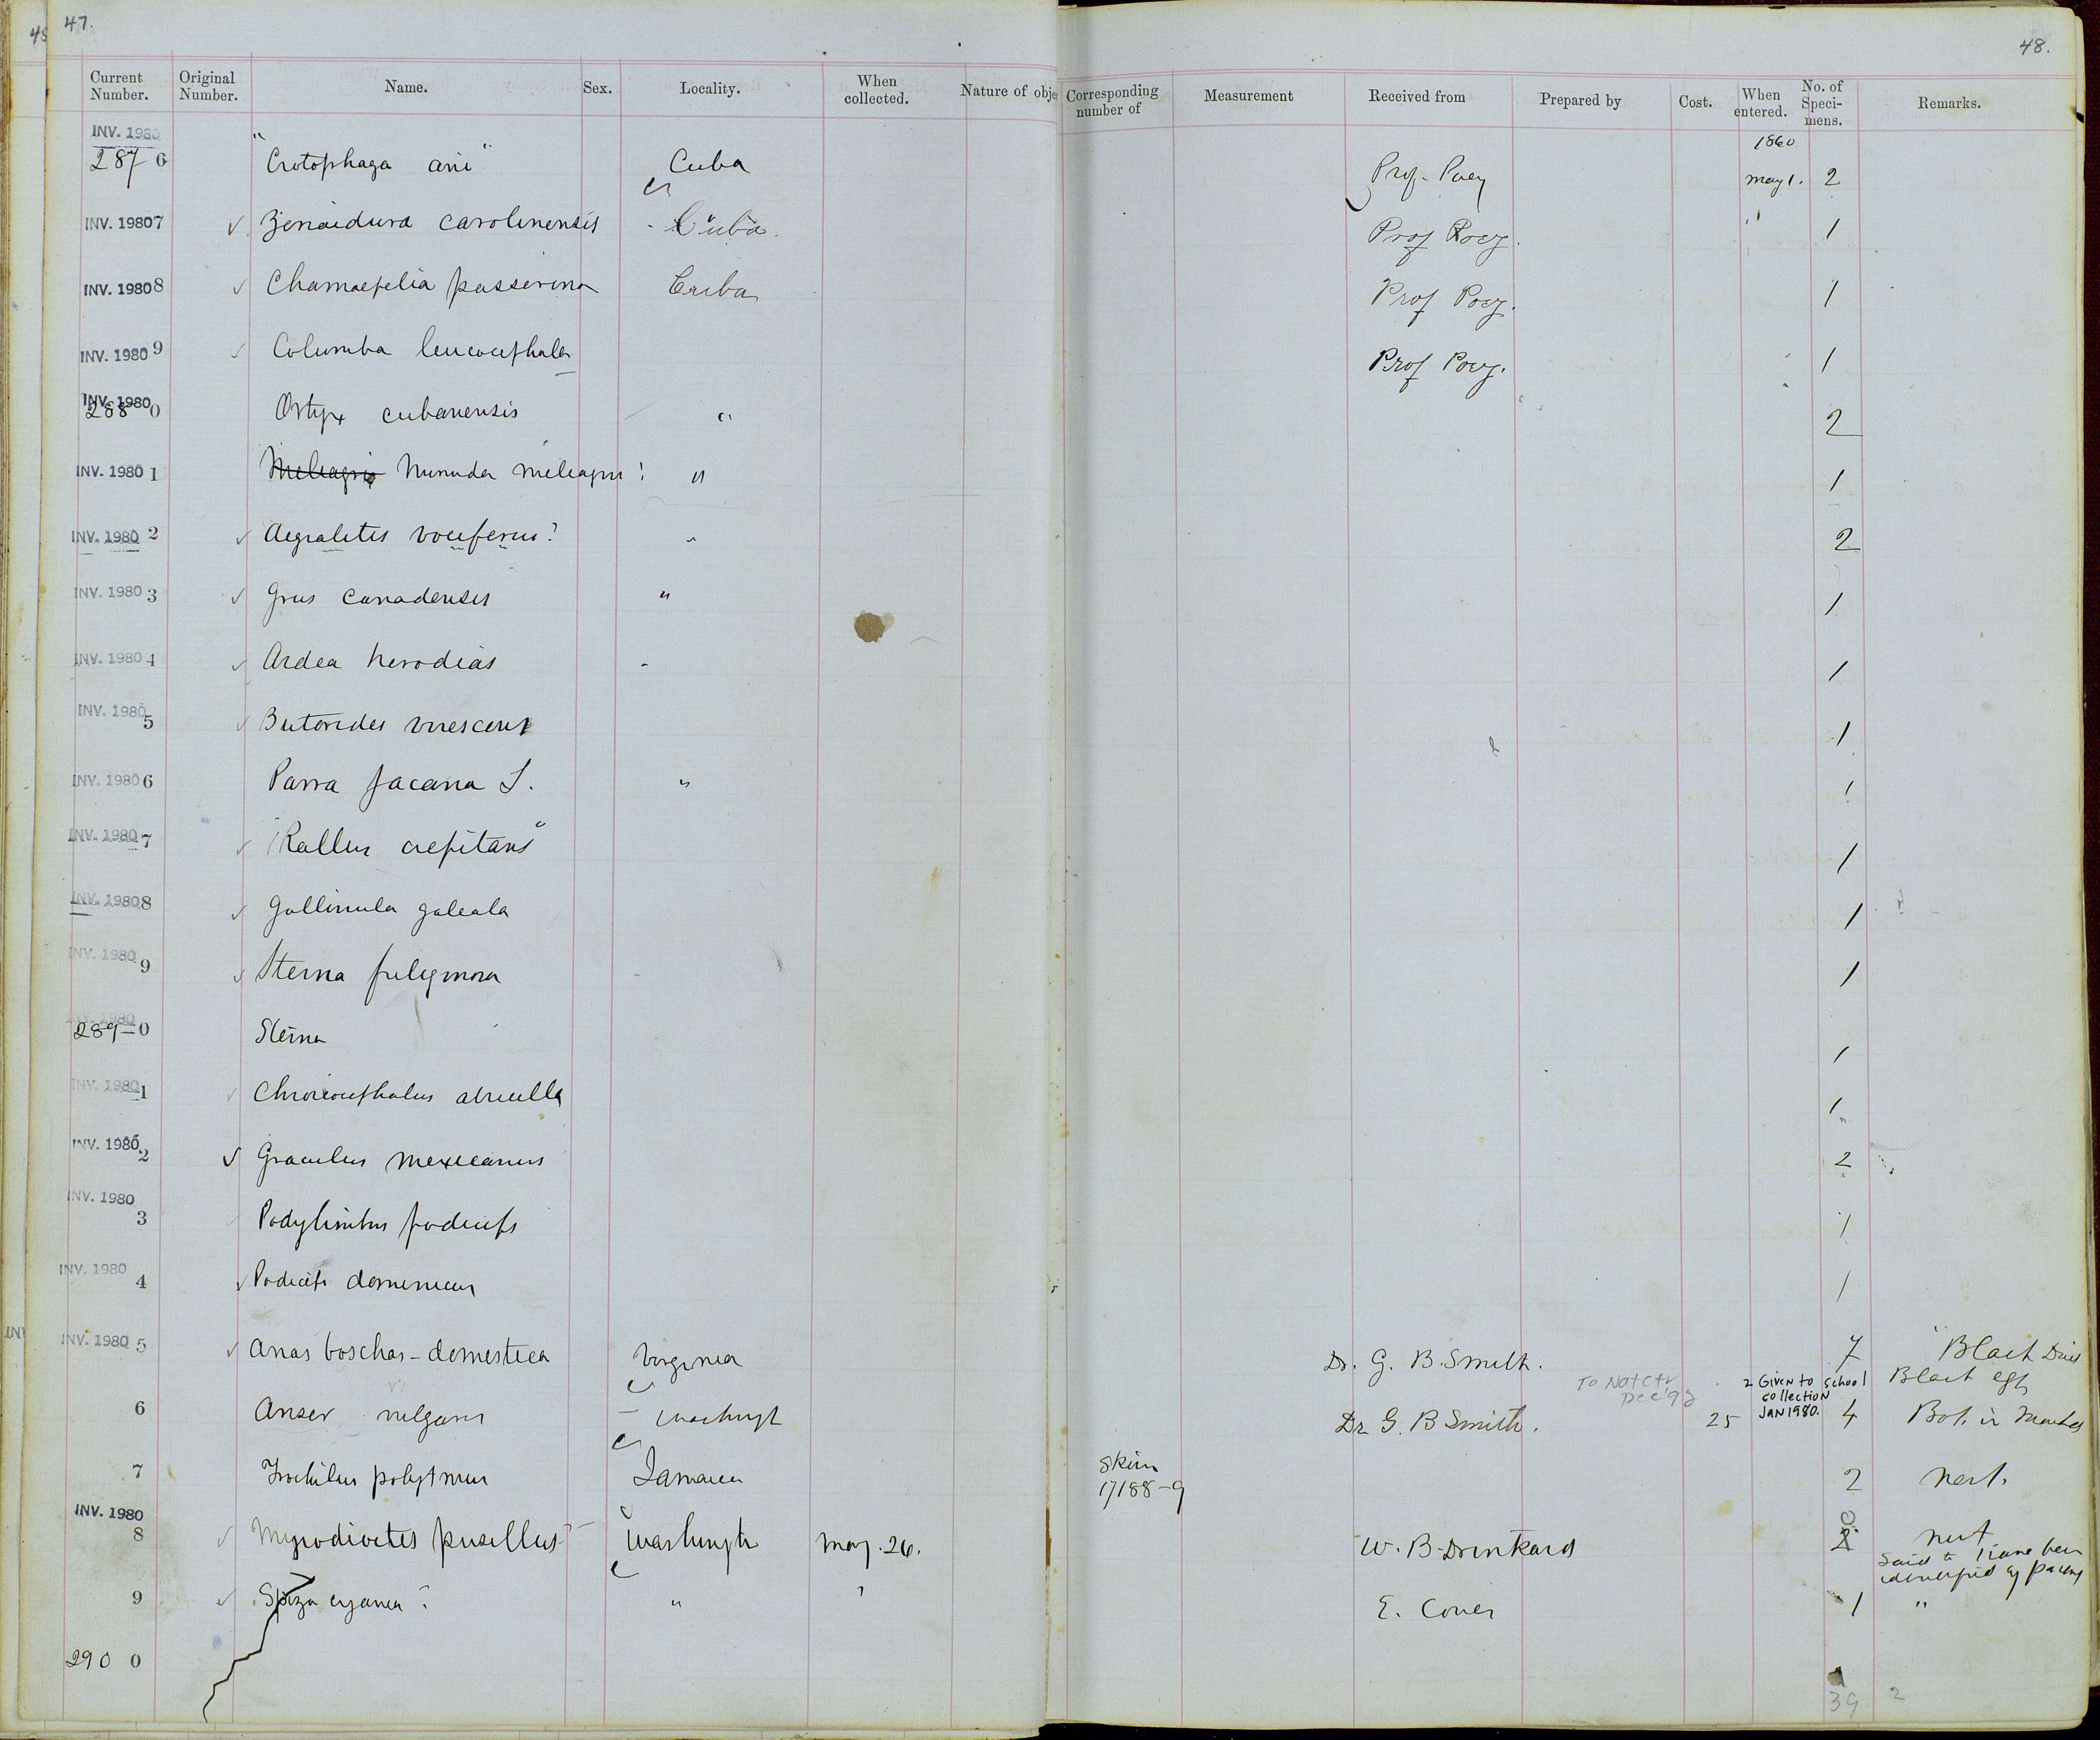 47.
48.
Current Number. Original Number. Name. Sex. Locality. When collected. Nature of obje Corresponding number of Measurement Received from Prepared by Cost. When entered. No. of Speci-mens. Remarks.
INV. 1980 1860
287 6 "Crotophaga ani" Cuba Prof. Poey May 1. 2
INV. 1980 7 ✓ Zenaidura carolinensis Cuba Prof Poey. " 1
INV. 1980 8 ✓ Chamaepelia passerina Cuba Prof Poey. 1
INV. 1980 9 ✓ Columba leucocephala Prof Poey. 1
INV. 1980
288 0 Ortyx cubanensis " 2
INV. 1980 1 Meleagris Numida meleagris ! " 1
INV. 1980 2 ✓ Aegialitis vociferus? " 2
INV. 1980 3 ✓ Grus canadensis " 1
INV. 1980 4 ✓ Ardea herodias 1
INV. 1980 5 ✓ Butorides virescens 1
INV. 1980 6 Parra jacana L. " 1
INV. 1980 7 ✓ "Rallus crepitans" 1
INV. 1980 8 ✓ Gallinula galeata 1
INV. 1980 9 ✓ Sterna fuliginosa 1
INV. 1980
289 0 Sterna 1
INV. 1980 1 ✓ Chroicocephalus atricilla 1
INV. 1980 2 ✓ Graculus mexicanus 2
INV. 1980 3 Podylimbus podiceps 1
INV. 1980 4 ✓ Podiceps dominicus 1
INV. 1980 5 ✓ Anas boschas-domestica Virginia Dr. G. B. Smith. 7 Black
To Nat Ctr Dec '92
2 Given to School collection JAN 1980.
Black egg
6 Anser vulgaris Washingt Dr G. B Smith. 25 4 Bot. in Market
7 Trochilus polytmus Jamaica Skin 17188-9 2 Nest.
INV. 1980
8 ✓ Myiodioctes pusillus? Washingtn May. 26. W. B. Drinkard 2 nest
Said to have been identified by parents
9 ✓ Spiza cyanea? " E. Coues 1 "
290 0
39 2